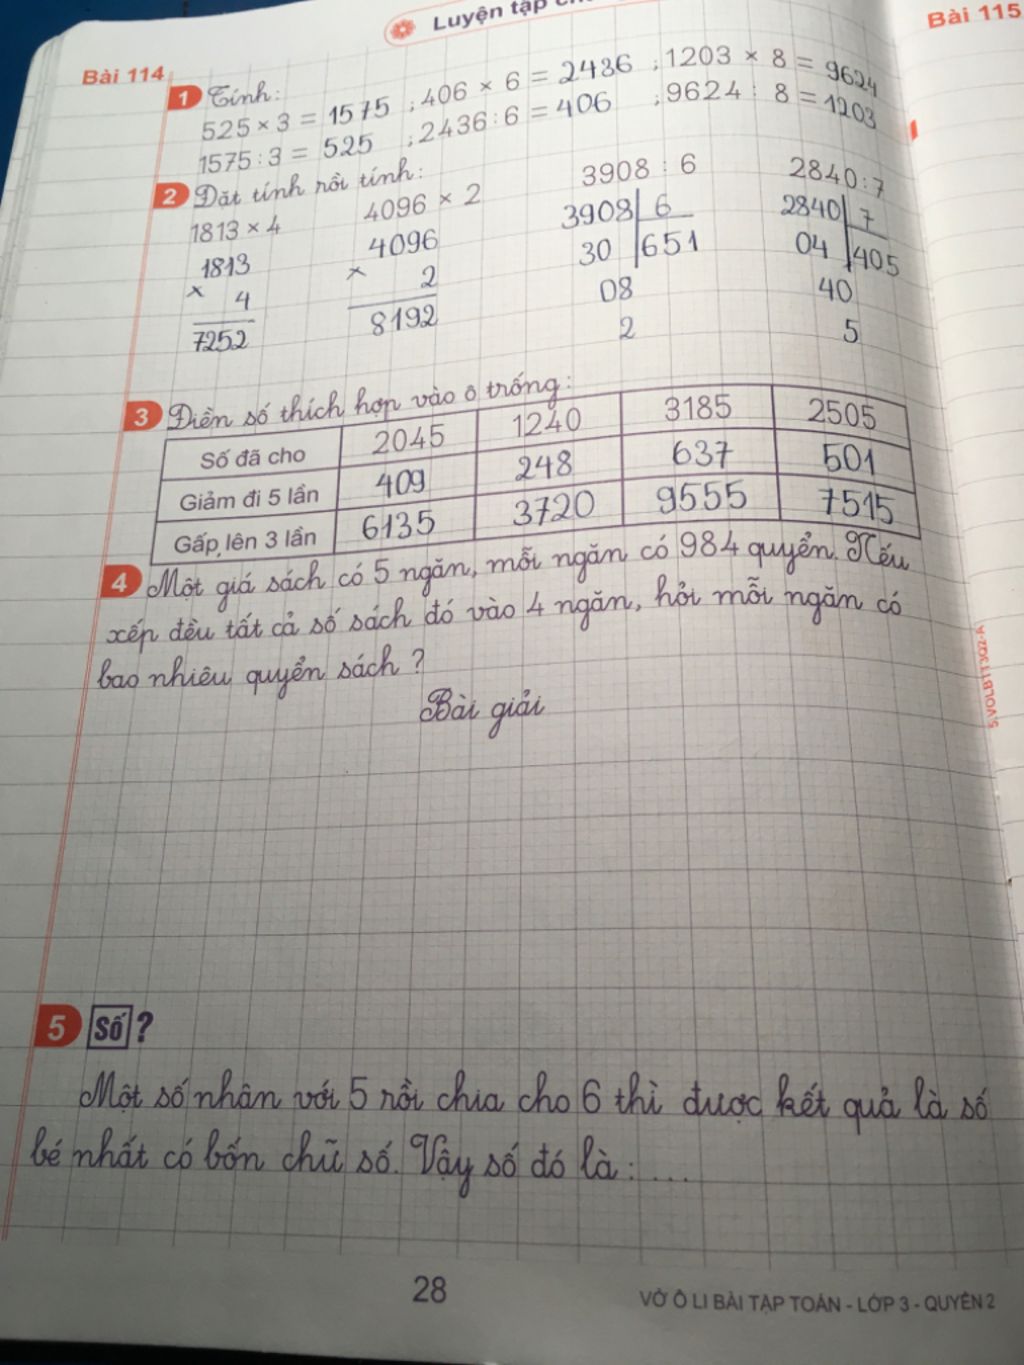 Luyện tập
Bài 115
Bài 114
1 Tính:
525 × 3 = 1575 ; 406 × 6 = 2436 ; 1203 × 8 = 9624
1575 : 3 = 525 ; 2436 : 6 = 406 ; 9624 : 8 = 1203
2 Đặt tính rồi tính:
1813 × 4 4096 × 2 3908 : 6 2840 : 7
1813 4096 3908 6 2840 7
× 4 × 2 30 651 04 405
7252 8192 08 40
2 5
3 Điền số thích hợp vào ô trống:
Số đã cho 2045 1240 3185 2505
Giảm đi 5 lần 409 248 637 501
Gấp lên 3 lần 6135 3720 9555 7515
4 Một giá sách có 5 ngăn, mỗi ngăn có 984 quyển. Nếu
xếp đều tất cả số sách đó vào 4 ngăn, hỏi mỗi ngăn có
bao nhiêu quyển sách ?
Bài giải
5.VOLBTT3Q2-A
5 Số ?
Một số nhân với 5 rồi chia cho 6 thì được kết quả là số
bé nhất có bốn chữ số. Vậy số đó là: ...
28
VỞ Ô LI BÀI TẬP TOÁN - LỚP 3 - QUYỂN 2